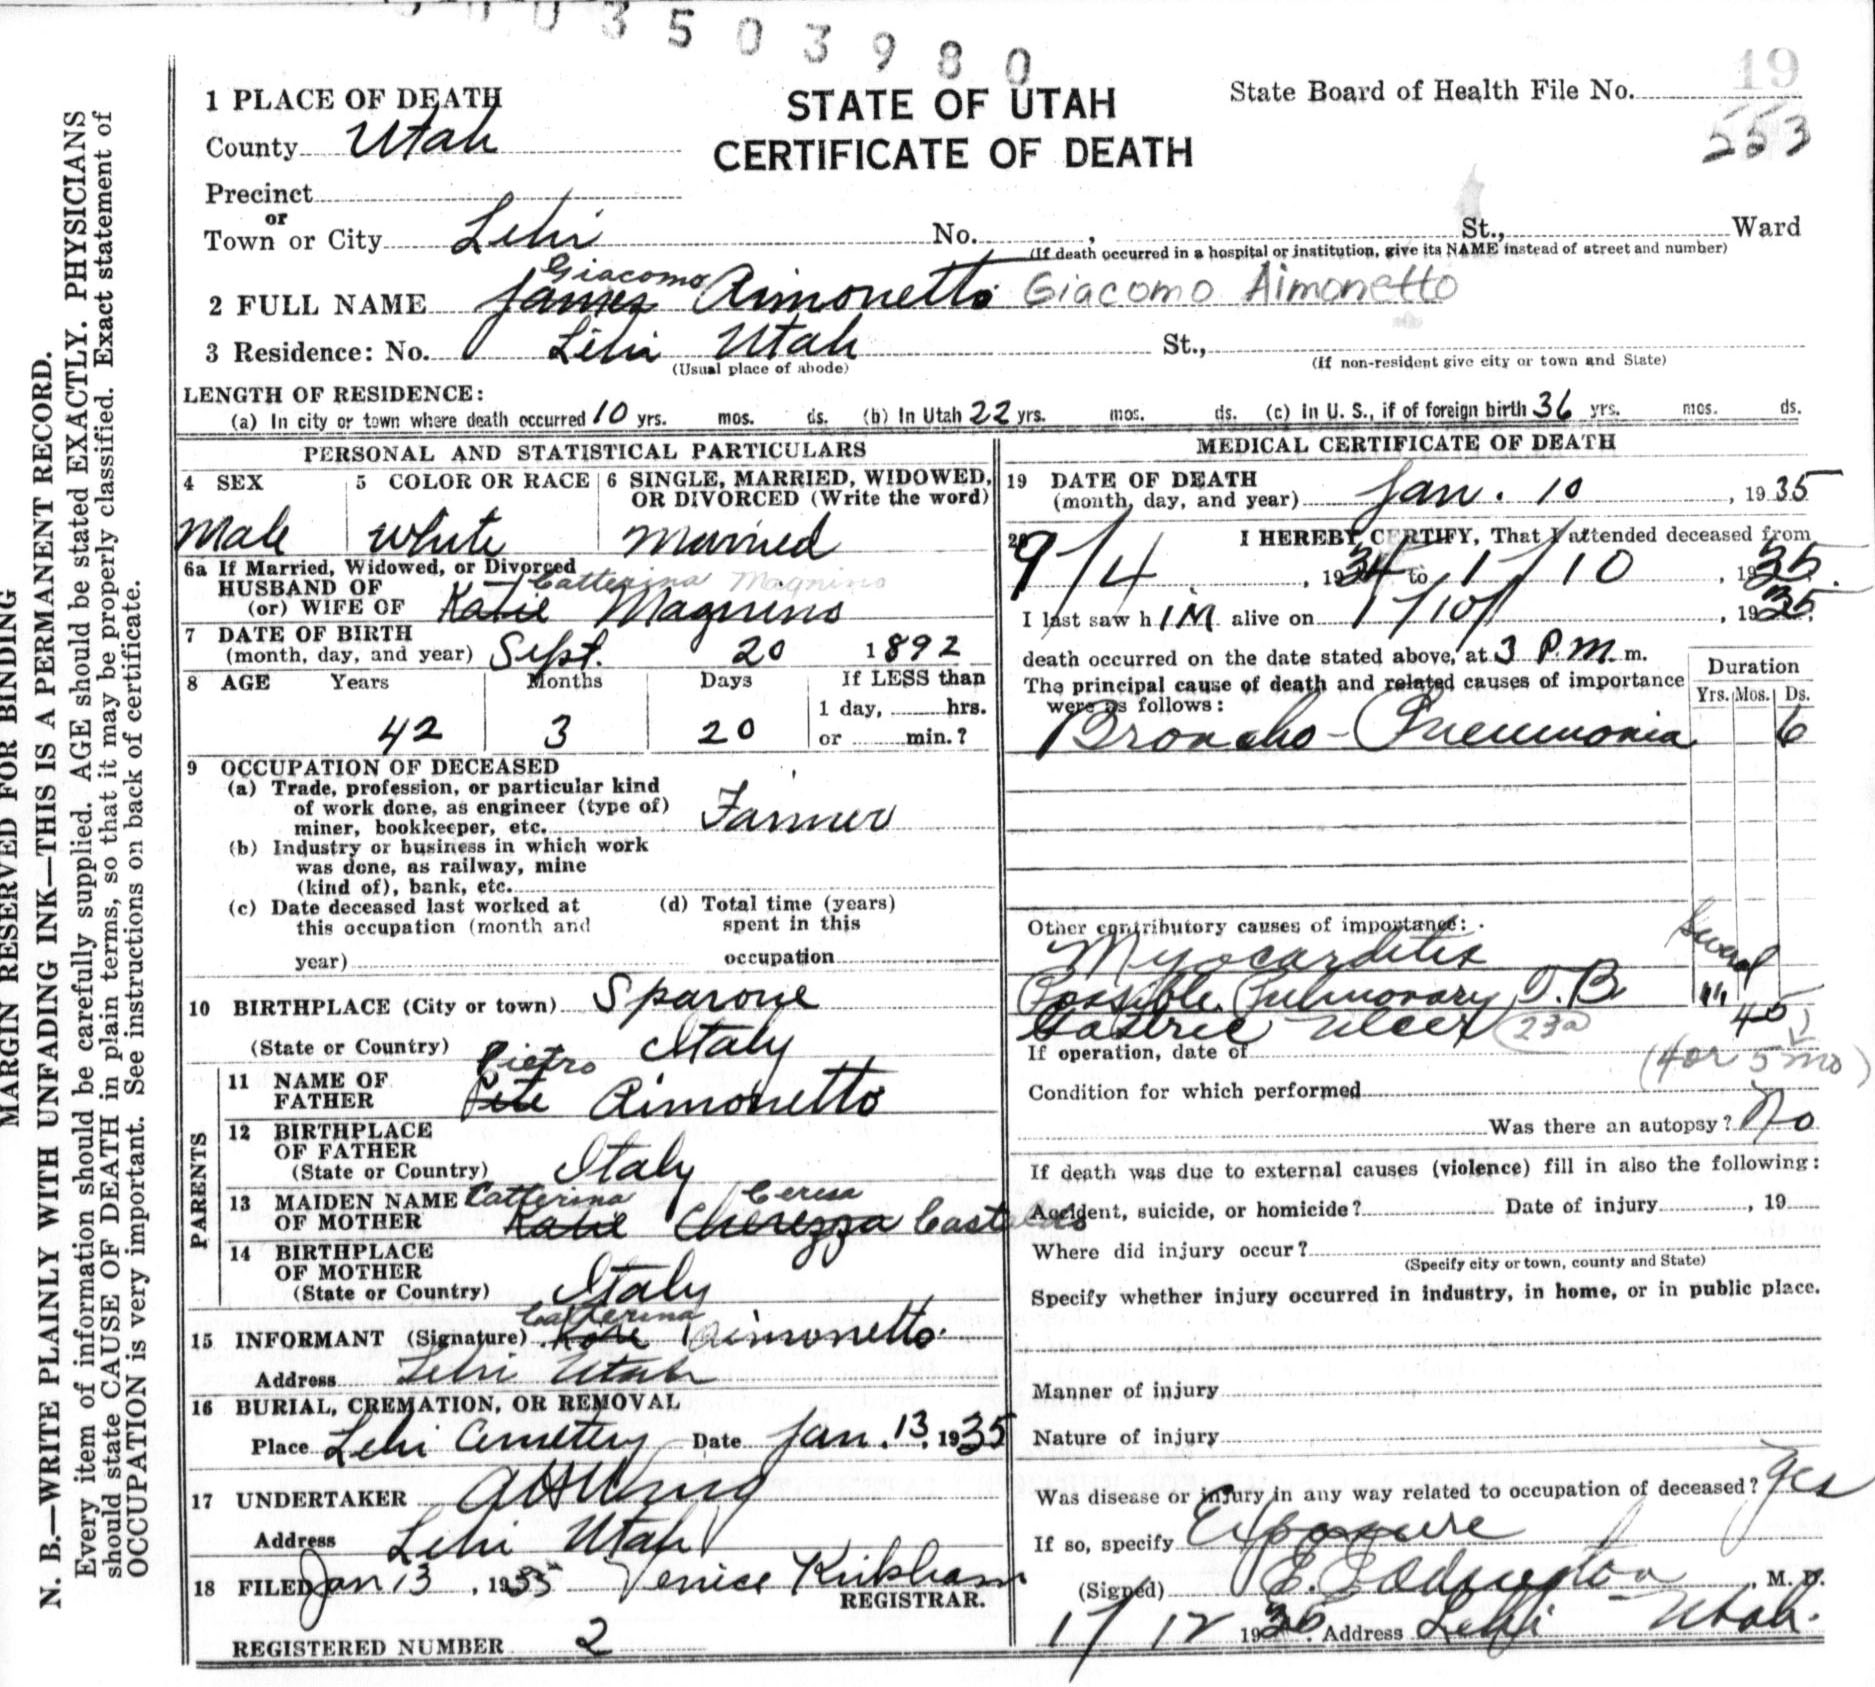 3 5 0 3 9 8 0
19
553
1 PLACE OF DEATH
County Utah
STATE OF UTAH
CERTIFICATE OF DEATH
State Board of Health File No.
Precinct
or
Town or City Lehi No. , St., Ward
(If death occurred in a hospital or institution, give its NAME instead of street and number)
Giacomo
2 FULL NAME James Aimonetto Giacomo Aimonetto
3 Residence: No. Lehi Utah St.,
(Usual place of abode) (If non-resident give city or town and State)
LENGTH OF RESIDENCE:
(a) In city or town where death occurred 10 yrs. mos. ds. (b) In Utah 22 yrs. mos. ds. (c) in U. S., if of foreign birth 36 yrs. mos. ds.
PERSONAL AND STATISTICAL PARTICULARS
4 SEX 5 COLOR OR RACE 6 SINGLE, MARRIED, WIDOWED,
OR DIVORCED (Write the word)
Male White Married
6a If Married, Widowed, or Divorced
HUSBAND OF Catterina Magnino
(or) WIFE OF Katie Magnino
7 DATE OF BIRTH
(month, day, and year) Sept. 20 1892
8 AGE Years Months Days If LESS than
1 day, hrs.
42 3 20 or min.?
9 OCCUPATION OF DECEASED
(a) Trade, profession, or particular kind
of work done, as engineer (type of)
miner, bookkeeper, etc. Farmer
(b) Industry or business in which work
was done, as railway, mine
(kind of), bank, etc.
(c) Date deceased last worked at
this occupation (month and
year)
(d) Total time (years)
spent in this
occupation
10 BIRTHPLACE (City or town) Sparone
(State or Country) Italy
PARENTS
Pietro
11 NAME OF
FATHER Pete Aimonetto
12 BIRTHPLACE
OF FATHER
(State or Country) Italy
13 MAIDEN NAME Catterina Ceresa
OF MOTHER Katie Cherezza
14 BIRTHPLACE
OF MOTHER
(State or Country) Italy
Catterina
15 INFORMANT (Signature) Rose Aimonetto
Address Lehi Utah
16 BURIAL, CREMATION, OR REMOVAL
Place Lehi Cemetery Date Jan. 13, 1935
17 UNDERTAKER
Address Lehi Utah
18 FILED Jan 13, 1935 Venice Kirkham
REGISTRAR.
REGISTERED NUMBER 2
MEDICAL CERTIFICATE OF DEATH
19 DATE OF DEATH
(month, day, and year) Jan. 10, 1935
20 I HEREBY CERTIFY, That I attended deceased from
9/4, 1934 to 1/10, 1935.
I last saw h IM alive on 1/10, 1935,
death occurred on the date stated above, at 3 P.M. m.
The principal cause of death and related causes of importance
were as follows:
Duration
Yrs. Mos. Ds.
Broncho-Pneumonia 6
Other contributory causes of importance:
Myocarditis Several
Possible Pulmonary T.B. " "
Gastric Ulcer 23a
If operation, date of (4 or 5 mo)
Condition for which performed
Was there an autopsy? No
If death was due to external causes (violence) fill in also the following:
Accident, suicide, or homicide? Date of injury , 19
Where did injury occur?
(Specify city or town, county and State)
Specify whether injury occurred in industry, in home, or in public place.
Manner of injury
Nature of injury
Was disease or injury in any way related to occupation of deceased? Yes
If so, specify Exposure
(Signed) E. Eddington, M. D.
1/12 19 Address Lehi Utah.
MARGIN RESERVED FOR BINDING
N. B.—WRITE PLAINLY WITH UNFADING INK—THIS IS A PERMANENT RECORD.
Every item of information should be carefully supplied. AGE should be stated EXACTLY. PHYSICIANS
should state CAUSE OF DEATH in plain terms, so that it may be properly classified. Exact statement of
OCCUPATION is very important. See instructions on back of certificate.